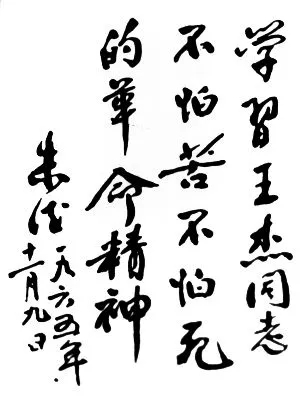 学習王杰同志
不怕苦不怕死
的革命精神
朱德
一九六五年
十一月九日